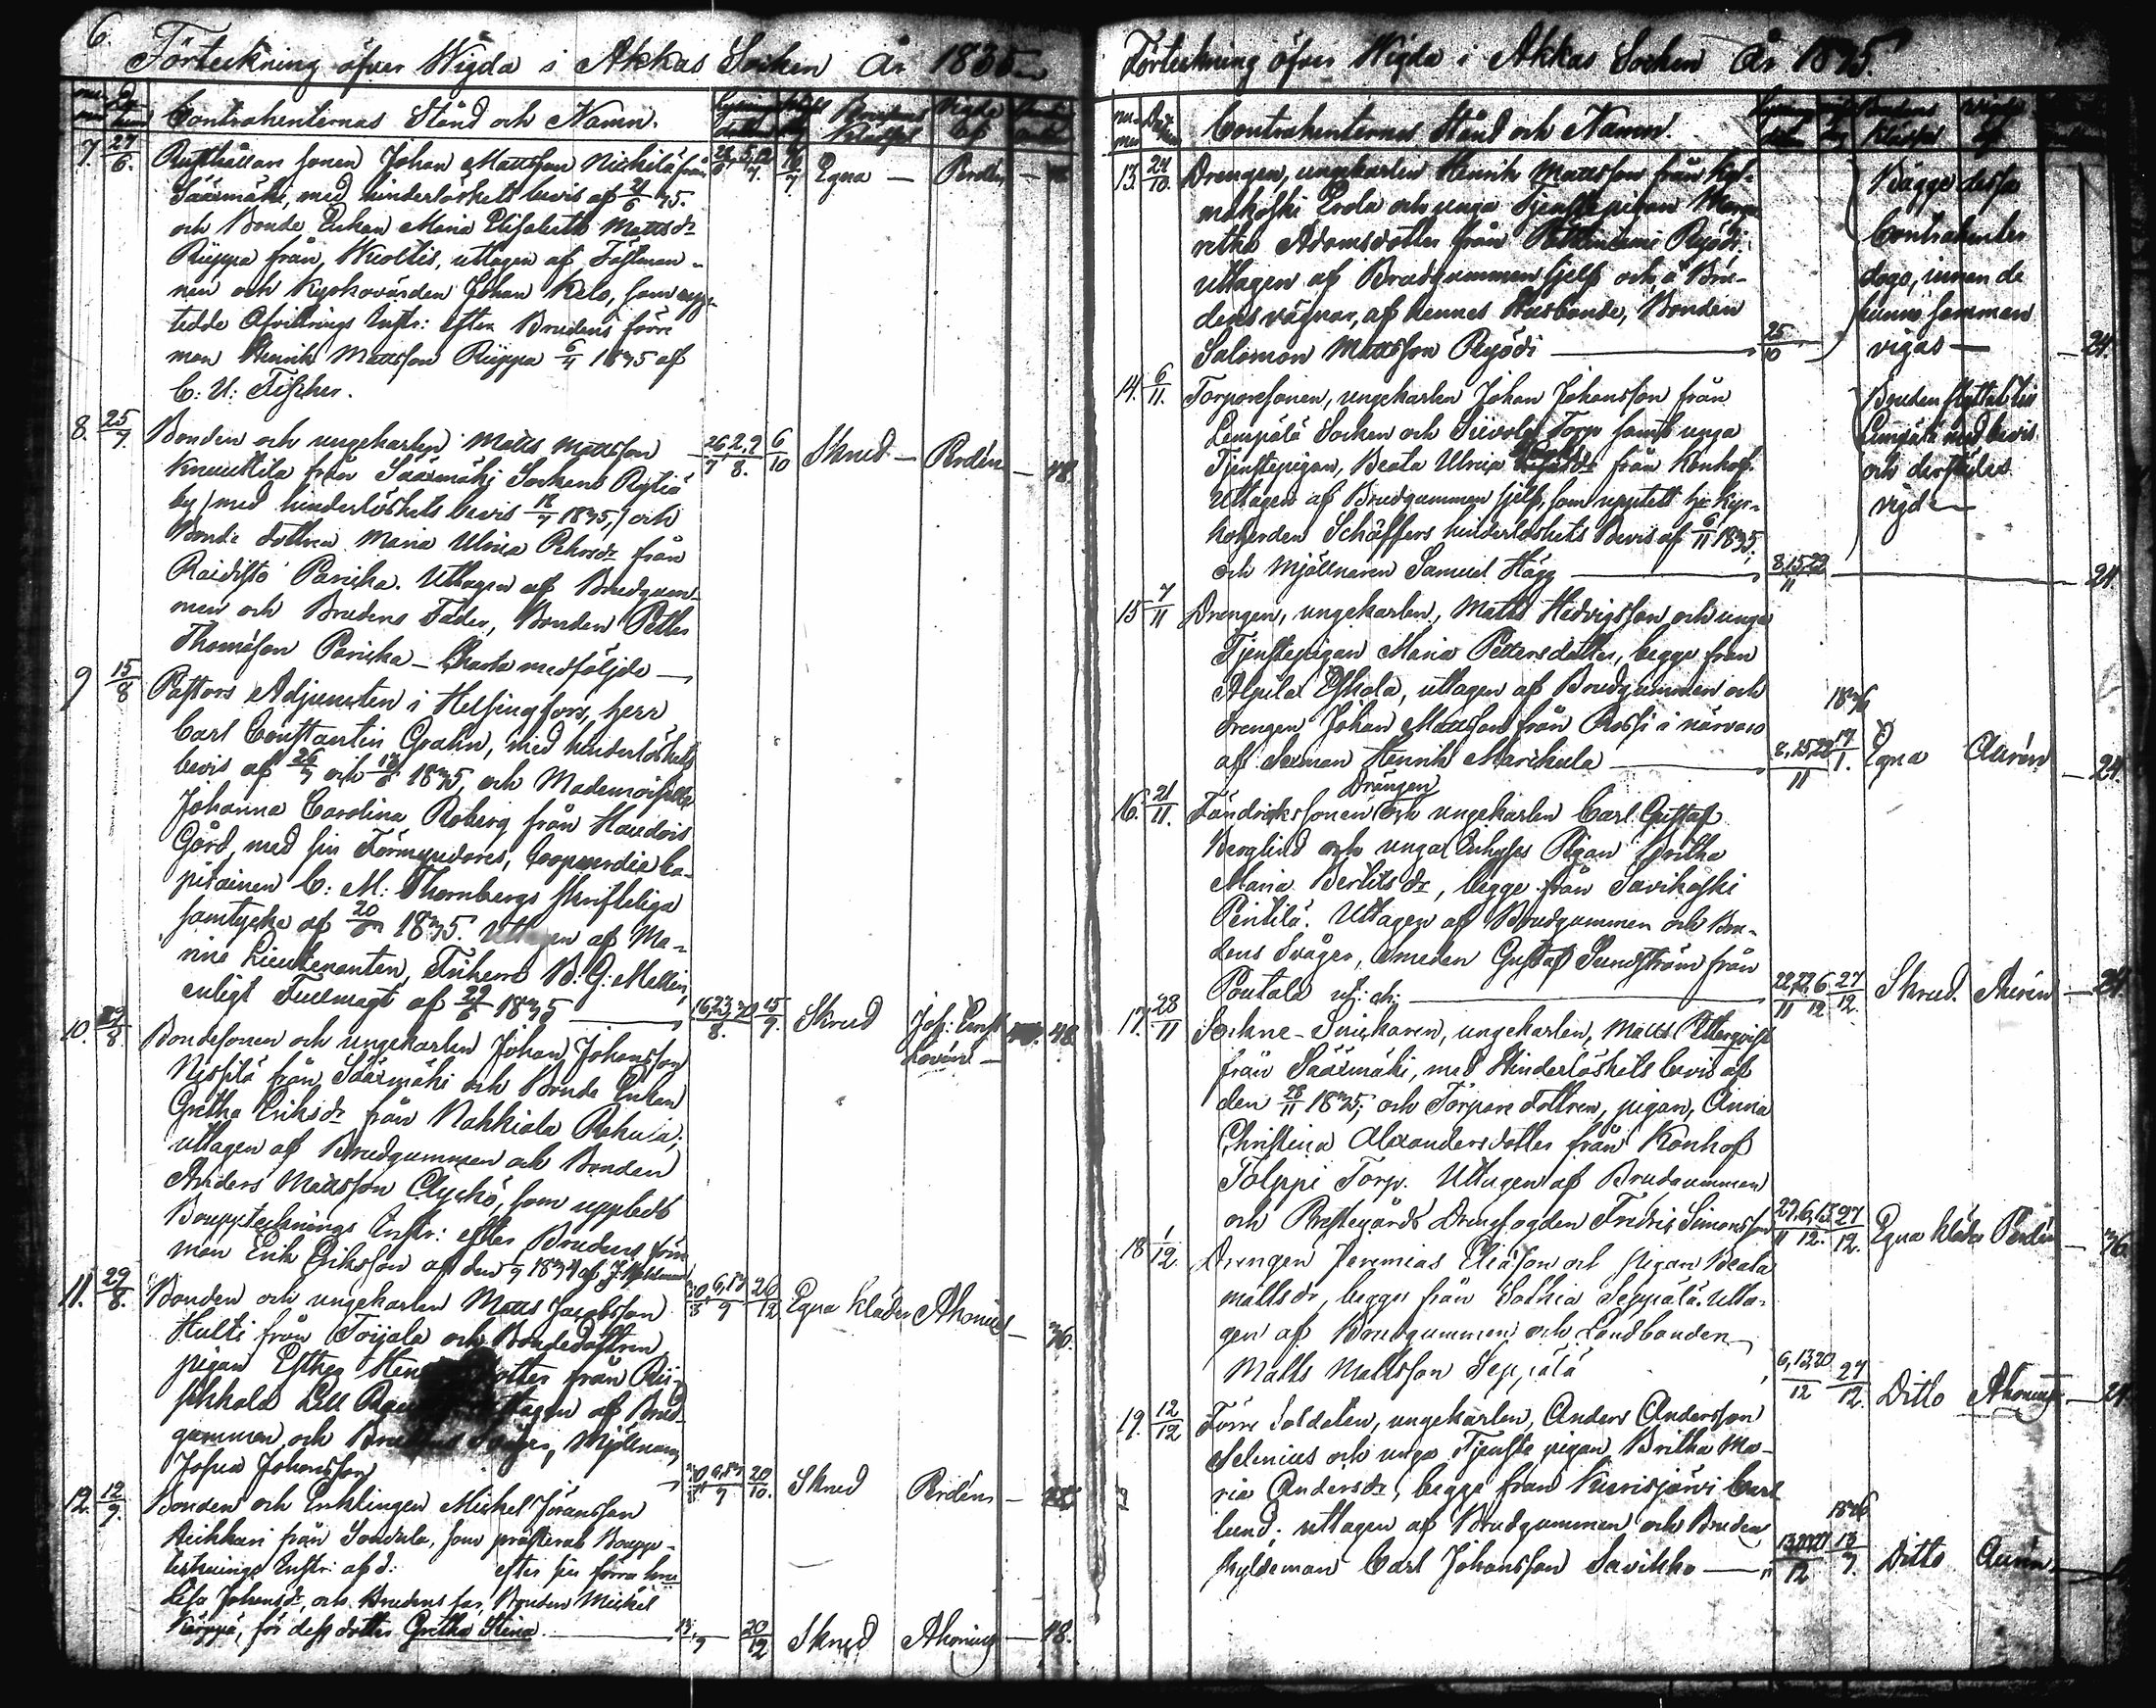 6.
Förteckning öfver Wigda i Akkas Socken År 1835
Contrahenternas Stånd och Namn.
7. 27/6. Rusthållare sonen Johan Mattsson Nickilä från 28/6 5,12/7 Egna — Perdén —
Sääxmäki, med hinderlöshets bevis af 35.
och Bonde Enkan Maria Elisabeth Mattsdr
Rüppa från, Kioltis, uttagen af Fästman-
nen och Kyrkovärden Johan Kelo, som upp-
tedde Afvittrings Instr: efter Brudens förre
man Henrik Mattsson Rüppa 6/4 1835 af
C: U: Fischer.
8. 25/7. Bonden och ungekarlen, Matts Mattsson 26/7 2,9/8. 6/10 Skrud — Perdén — 48.
Knuutila från Sääxmäki Sockens Rytiö
by (med hinderlöshets bevis 18/7 1835,) och
Bonde dottren Maria Ulrica Pehrsdr från
Raidisto Parika. Uttagen af Brudgum-
men och Brudens Fader, Bonden Petter
Thomasson Parika — Charta medföljde —
9 15/8 Pastors Adjuncten i Helsingfors, herr
Carl Constantin Grahn, med hinderlöshets
bevis af 26/7 och 1835, och Mademoiselle
Johanna Carolina Roberg från Haudois
Gård, med sin Förmyndares, Coopverdie Ca-
pitainen C: M: Thornbergs skriftliga
samtycke af 1835. Uttagen af Ma-
rine Lieutenanten, Friherre B. G: Mellin,
enligt Fullmagt af 1835 — 16,23,30/8. 15/9. Skrud Jos: Ernst Lovén — 48
10. 29/8. Bondesonen och ungekarlen Johan Johansson
Nissilä från Sääxmäki och Bonde Enkan
Gretha Eriksdr från Nahkiala Rekula;
uttagen af Brudgummen och Bonden
Anders Mattsson Clyckö, som uppteds
Bouppteckning Instr: efter Brudens förre
man Erik Eriksson af den 1834 af J.
30/8 6,13/9 26/12 Egna kläder Ahonius — 36.
11. 29/8. Bonden och ungekarlen Matts Jacobsson
Hulti från Toijala och Bondedottren,
pigan Esther från
Lill uttagen af Brud-
gummen och Brudens Svåger, Mjölnaren
Josua Johansson 30/8 6,13/9 20/10. Skrud Perdén —
12. 12/9. Bonden och Enklingen Michel Jöransson
Heikkari från Sontula, som presterat Bouppe-
tecknings Instr: af d: efter sin förra hustru
Lisa Johansdr, och Brudens far, Bonden Michel
Köppä, för dess dotter Gretha Stina — 13/9 20/12 Skrud Ahonius — 48.
Förteckning öfver Wigda i Akkas Socken År 1835.
Contrahenternes Stånd och Namn.
13. 24/10. Drengen, ungekarlen Henrik Mattsson från Kyl-
mäkoski Erola och unga Tjenstepigan Marga-
retha Adamsdotter från Ryödi:
uttagen af Brudgummen sjelf och å Bru-
dens vägnar, af hennes Husbonde, Bonden
Salomon Mattsson Ryödi — 25/10 — 24.
Bägge dessa
Contrahenter
dogo, innan de
hunno samman
vigas —
14. 6/11. Torparesonen, ungekarlen Johan Johansson från
Lempälä Socken och Sievola Torp samt unga
Tjenstepigan, Beata Ulrica från Konhof.
Uttagen af Brudgummen sjelf, som upptett hr Kyr-
koherden Schäffers hinderlöshets bevis af 6/11 1835.
och Mjöllnaren Samuel Hägg — 8,15,22/11 — 24.
Bruden flyttat till
Lempälä med bevis
och derstädes
vigde —
15 7/11 Drengen, ungekarlen, Matts Hedvigsson och unga
Tjenstepigan Maria Pettersdotter, begge från
Alpila Eskola, uttagen af Brudgummen och
drengen Johan Mattsson från Rossi i närvaro
af Sexman Henrik Marickula — 8,15,22/11 1836 17/1. Egna Aurén — 24.
16. 21/11. Fändrikssonen Drängen och ungekarlen Carl Gustaf
Berglind och unga Inhyses Pigan Britha
Maria Bertilsdr, begge från Savikoski
Pentilä. Uttagen af Brudgummen och Bru-
dens Svåger, Smeden Gustaf Sundström från
Pontala — 27/12. Skrud. Aurén — 24.
17. 28/11 Sockne-Snickaren, ungekarlen, Matts Pettersqvist
från Sääxmäki, med Hinderlöshets bevis af
den 28/11 1835; och Torpare dottren, pigan, Anna
Christina Alexandersdotter från Konhof
Tolppi Torp. Uttagen af Brudgummen
och Prestegårds Drengfogden Fredric Simonsson 29/11 6,13/12. 27/12. Egna kläder Perdén — 36.
18 1/12. Drengen Jeremias Eliasson och pigan Beata
Mattsdr, begge från Sothia Seppälä. Utta-
gen af Brudgummen och Landbonden
Matts Mattsson Seppälä 6,13,20/12 27/12. Ditto Ahonius — 24
19. 12/12 Förre Soldaten, ungekarlen, Anders Andersson
Selenius och unga Tjenste pigan, Britha Ma-
ria Andersdr, begge från Kurisjärvi
lund: uttagen af Brudgummen och Brudens
skyldeman Carl Johansson Savikko — 13,20,27/12 1836 Ditto Aurén